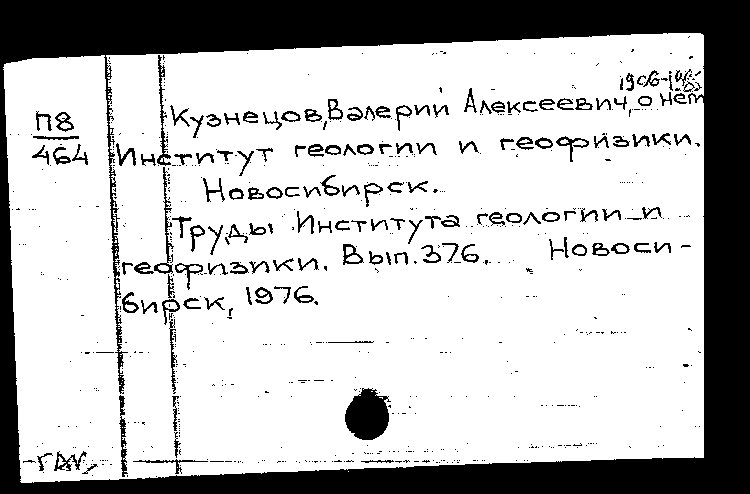 Кузнецов, Валерий Алексеевич, о нем
П8
464
Институт геологии и геофизики.
Новосибирск.
Труды Института геологии и
геофизики. Вып. 376. Новоси-
бирск, 1976.